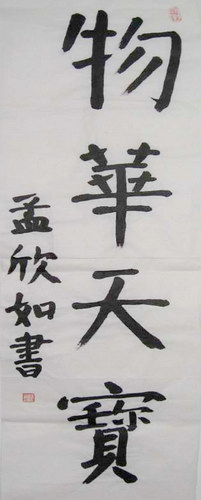 物華天寶
孟欣如書